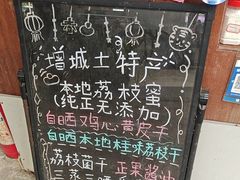 增城土特产
本地荔枝蜜
(纯正无添加)
自晒鸡心黄皮干
自晒本地桂味荔枝干
荔枝菌干 正果酱油
三蒸三晒